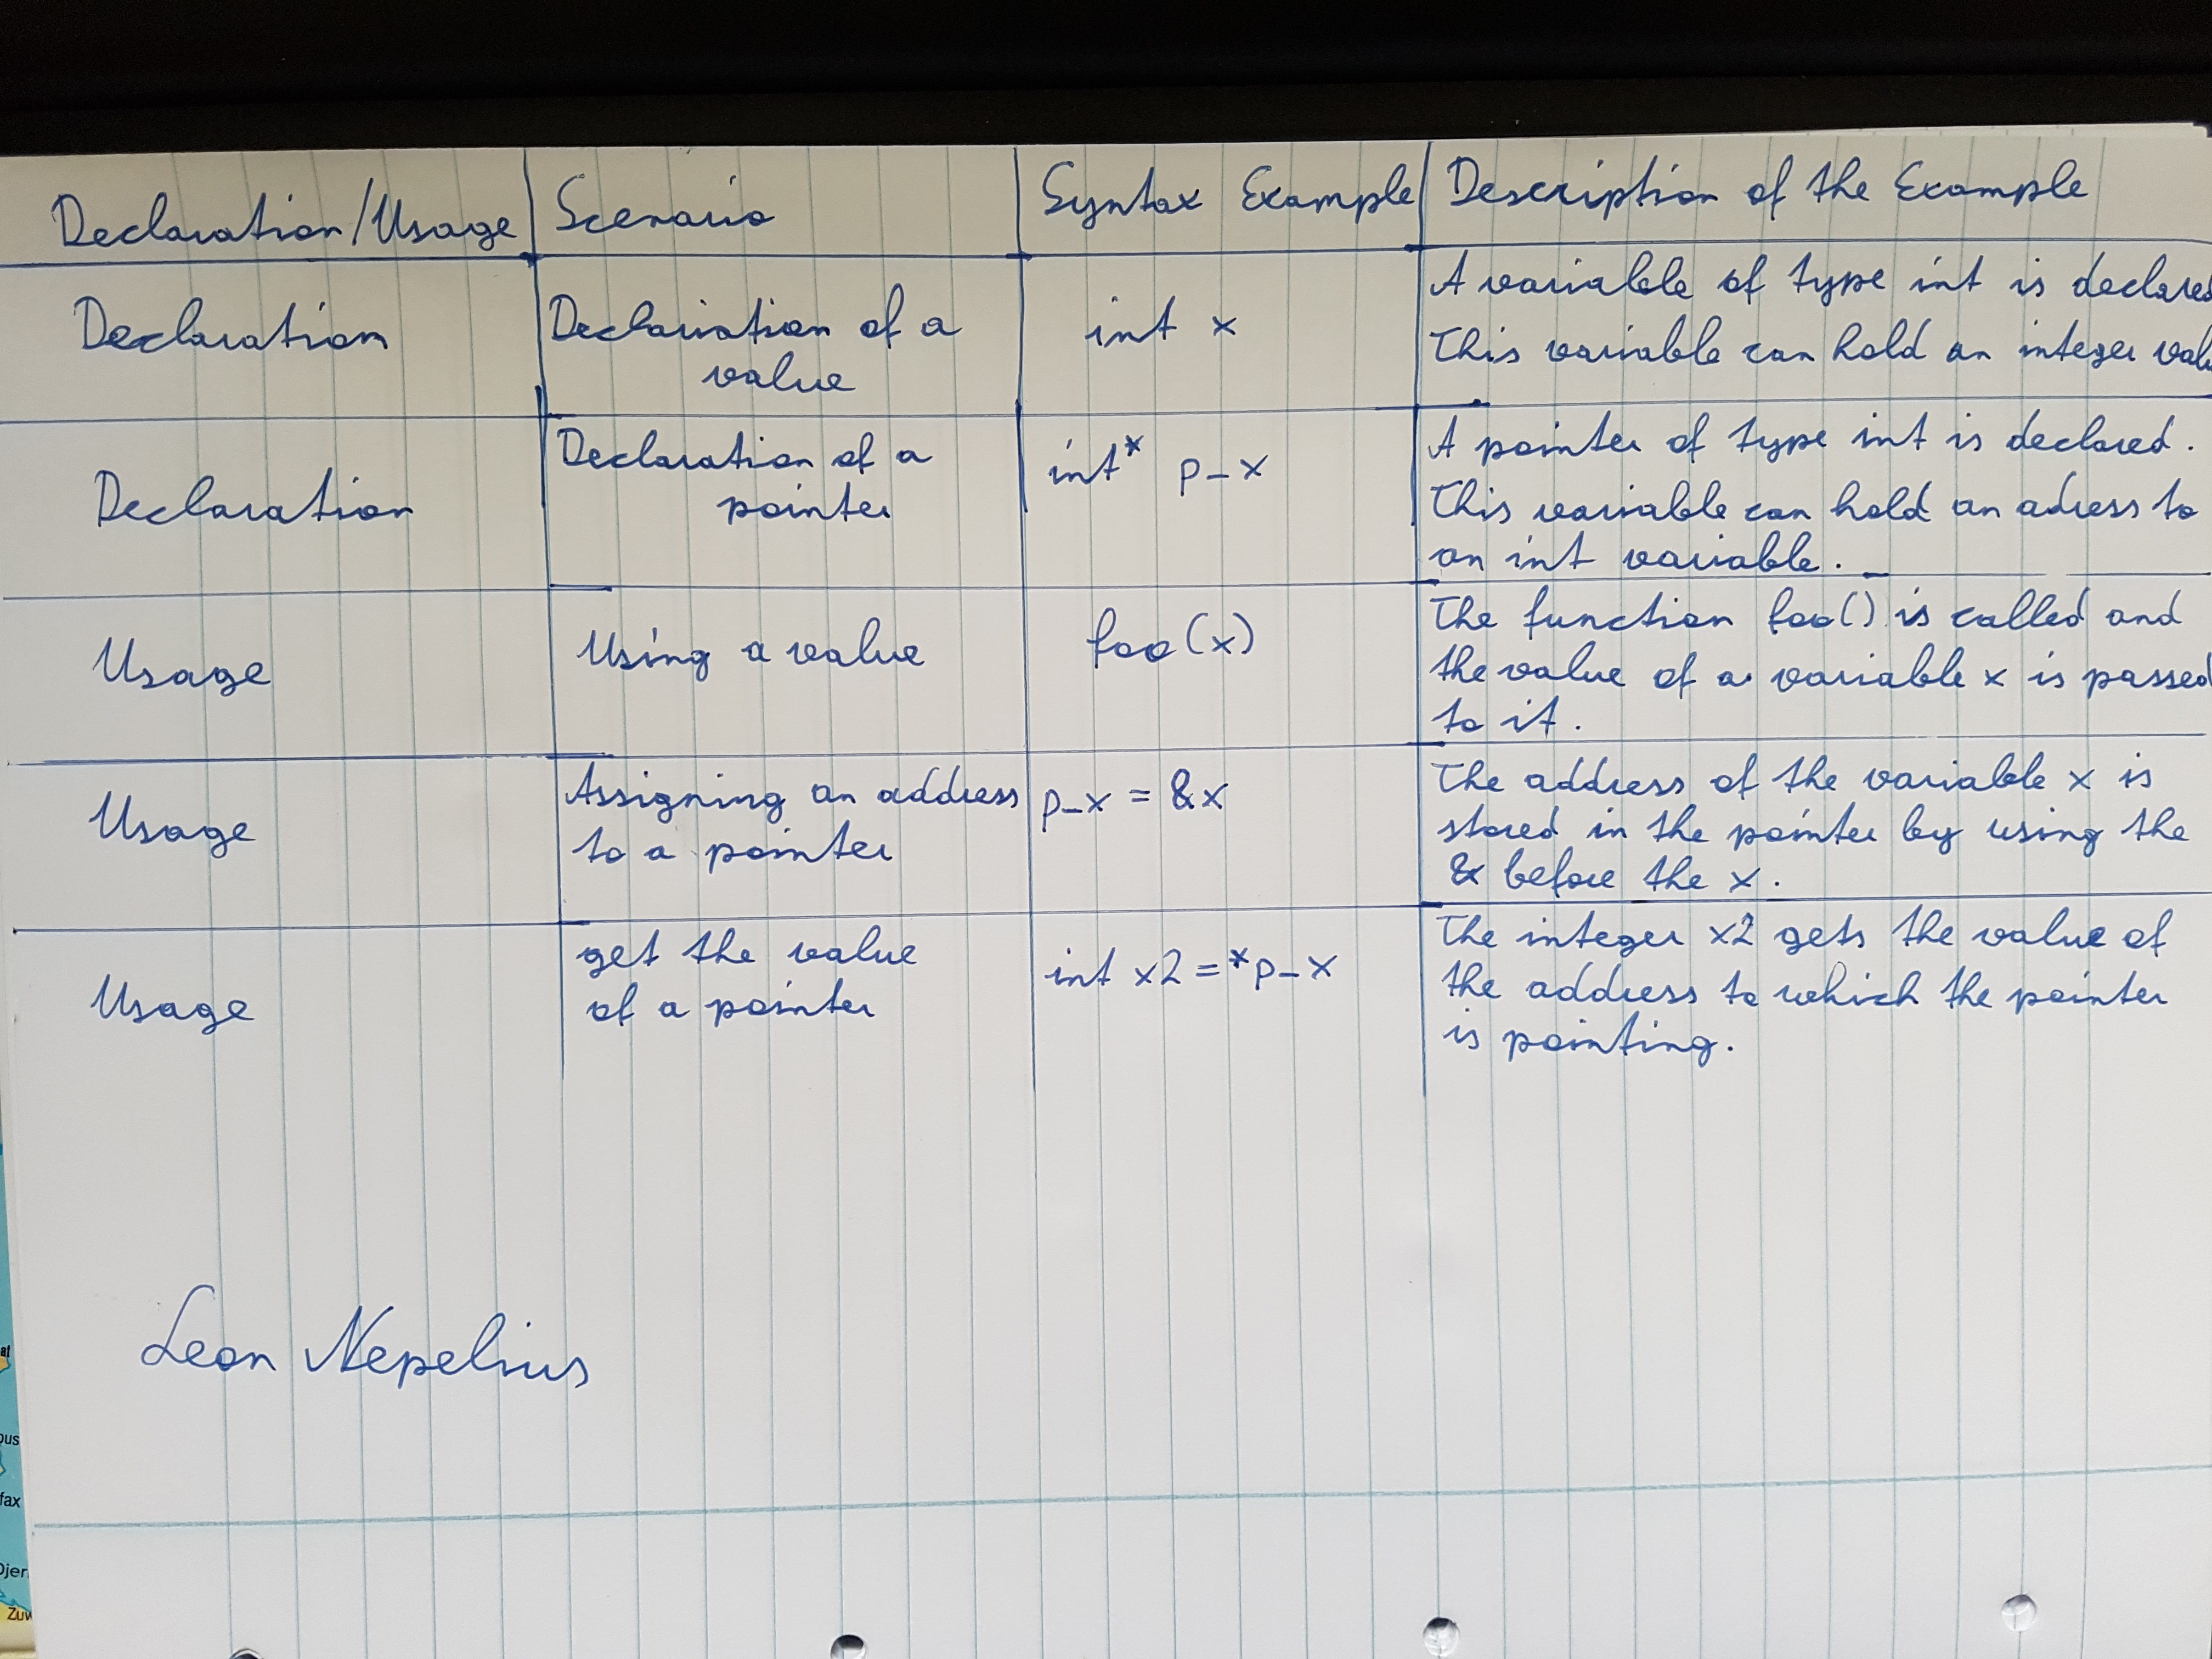 Declaration/Usage Scenario Syntax Example Description of the Example
Declaration
Declariation of a
value
int x
A variable of type int is declared
This variable can hold an integer valu
Declaration
Declaration of a
pointer
int* p_x
A pointer of type int is declared.
This variable can hold an adress to
an int variable.
Usage
Using a value
foo(x)
The function foo() is called and
the value of a variable x is passed
to it.
Usage
Assigning an address
to a pointer
p_x = &x
The address of the variable x is
stored in the pointer by using the
& before the x.
Usage
get the value
of a pointer
int x2 = *p_x
The integer x2 gets the value of
the address to which the pointer
is pointing.
Leon Nepelius
at
ous
fax
Djer
Zuw